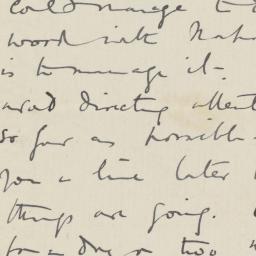 could manage to
word with
is to manage it -
avoid directing
so far as possible -
you a line later
things are going.
for a day or two